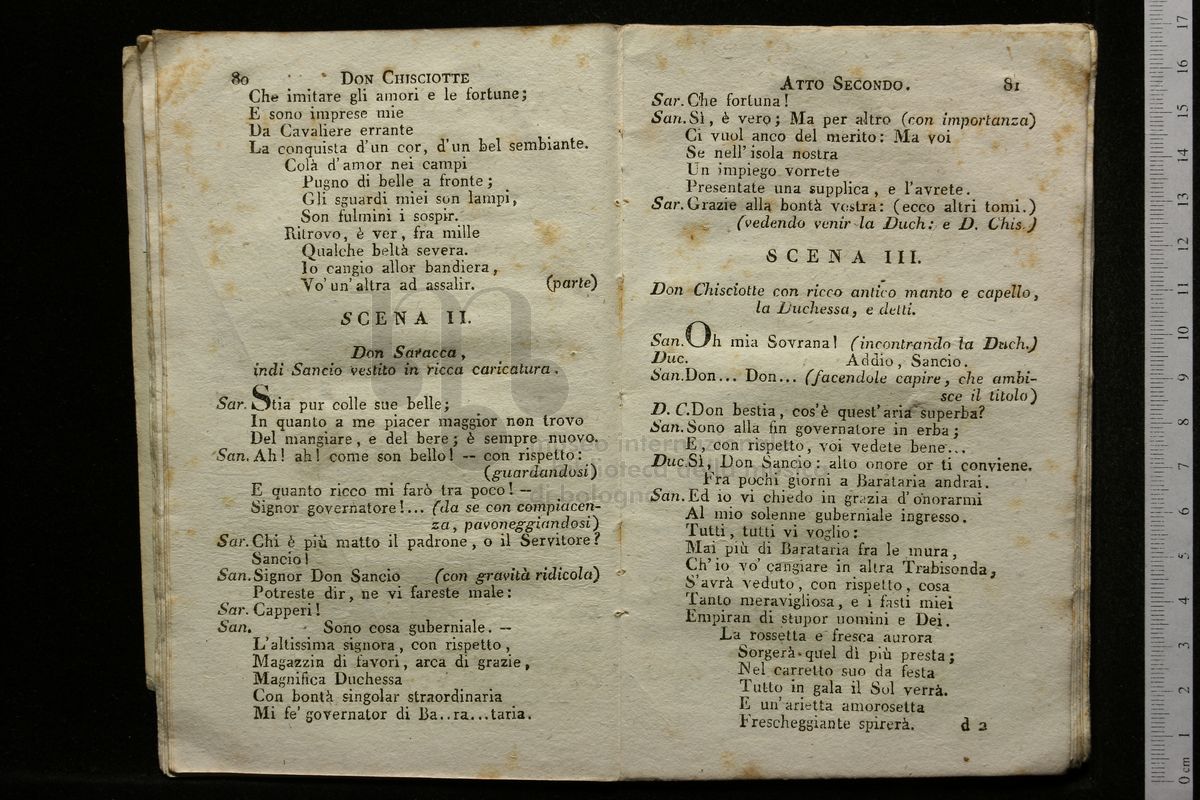 80 DON CHISCIOTTE
Che imitare gli amori e le fortune;
E sono imprese mie
Da Cavaliere errante
La conquista d'un cor, d'un bel sembiante.
Colà d'amor nei campi
Pugno di belle a fronte;
Gli sguardi miei son lampi,
Son fulmini i sospir.
Ritrovo, è ver, fra mille
Qualche beltà severa.
Io cangio allor bandiera,
Vo' un'altra ad assalir. (parte)
SCENA II.
Don Saracca,
indi Sancio vestito in ricca caricatura.
Sar. Stia pur colle sue belle;
In quanto a me piacer maggior non trovo
Del mangiare, e del bere; è sempre nuovo.
San. Ah! ah! come son bello! — con rispetto:
(guardandosi)
E quanto ricco mi farò tra poco! —
Signor governatore!... (da se con compiacen-
za, pavoneggiandosi)
Sar. Chi è più matto il padrone, o il Servitore?
Sancio!
San. Signor Don Sancio (con gravità ridicola)
Potreste dir, ne vi fareste male:
Sar. Capperi!
San. Sono cosa guberniale. —
L'altissima signora, con rispetto,
Magazzin di favori, arca di grazie,
Magnifica Duchessa
Con bontà singolar straordinaria
Mi fe' governator di Ba..ra...taria.
ATTO SECONDO. 81
Sar. Che fortuna!
San. Sì, è vero; Ma per altro (con importanza)
Ci vuol anco del merito: Ma voi
Se nell'isola nostra
Un impiego vorrete
Presentate una supplica, e l'avrete.
Sar. Grazie alla bontà vostra: (ecco altri tomi.)
(vedendo venir la Duch: e D. Chis.)
SCENA III.
Don Chisciotte con ricco antico manto e capello,
la Duchessa, e detti.
San. Oh mia Sovrana! (incontrando la Duch.)
Duc. Addio, Sancio.
San. Don... Don... (facendole capire, che ambi-
sce il titolo)
D. C. Don bestia, cos'è quest'aria superba?
San. Sono alla fin governatore in erba;
E, con rispetto, voi vedete bene...
Duc. Sì, Don Sancio: alto onore or ti conviene.
Fra pochi giorni a Barataria andrai.
San. Ed io vi chiedo in grazia d'onorarmi
Al mio solenne guberniale ingresso.
Tutti, tutti vi voglio:
Mai più di Barataria fra le mura,
Ch'io vo' cangiare in altra Trabisonda,
S'avrà veduto, con rispetto, cosa
Tanto meravigliosa, e i fasti miei
Empiran di stupor uomini e Dei.
La rossetta e fresca aurora
Sorgerà quel dì più presta;
Nel carretto suo da festa
Tutto in gala il Sol verrà.
E un'arietta amorosetta
Frescheggiante spirerà. d 2
museo internazionale
biblioteca della musica
di bologna
0 cm 1 2 3 4 5 6 7 8 9 10 11 12 13 14 15 16 17